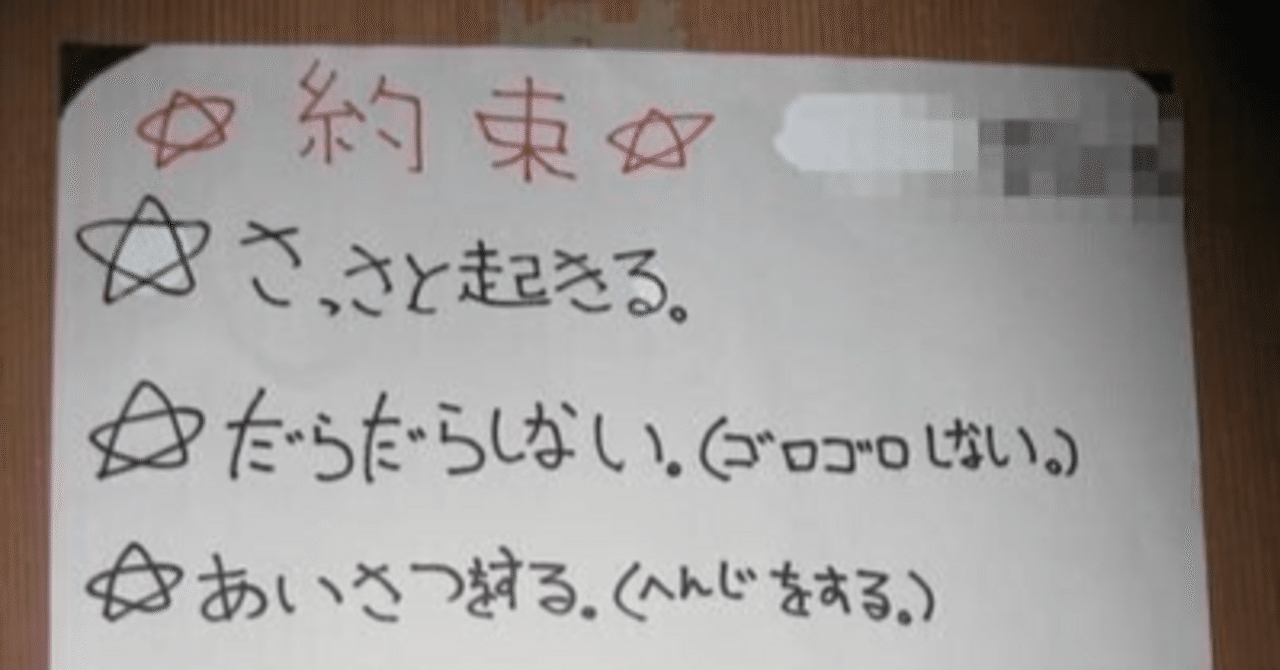 ☆約束☆
☆さっさと起きる。
☆だらだらしない。(ゴロゴロしない。)
☆あいさつをする。(へんじをする。)